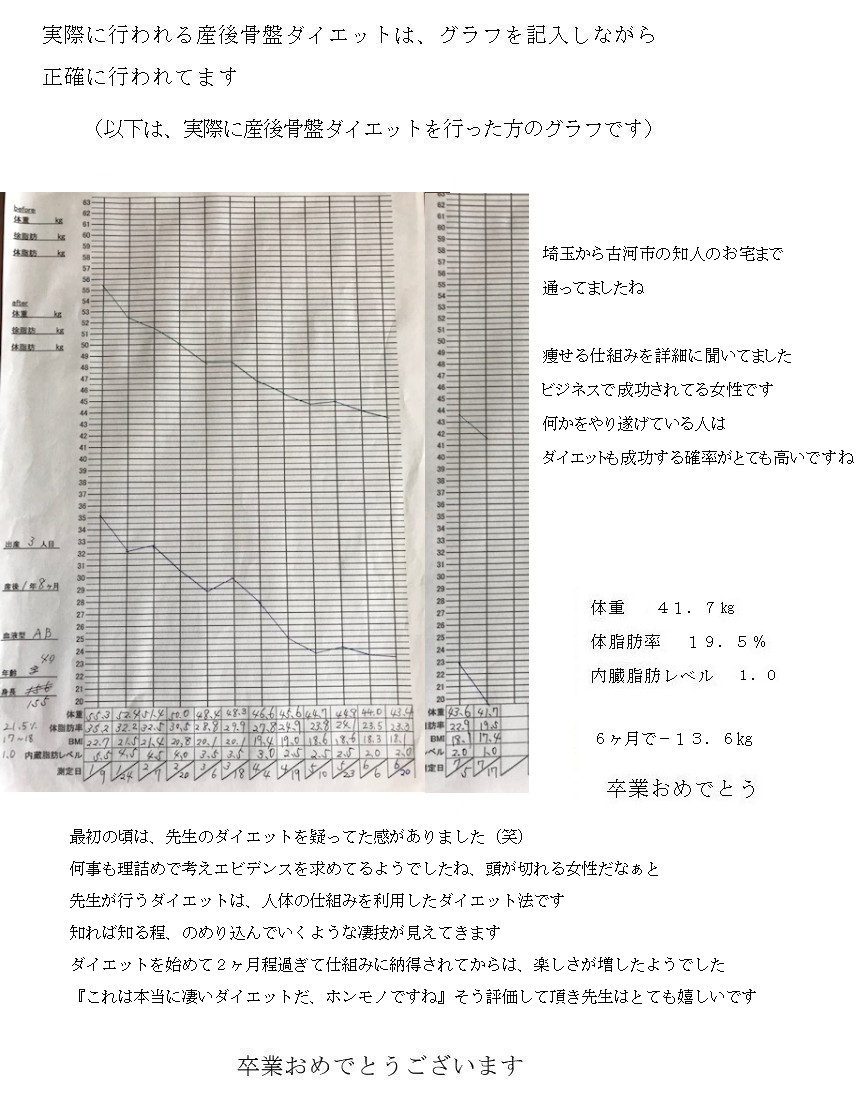 実際に行われる産後骨盤ダイエットは、グラフを記入しながら
正確に行われてます
（以下は、実際に産後骨盤ダイエットを行った方のグラフです）
before
体重 kg
徐脂肪 kg
体脂肪 kg
after
体重 kg
徐脂肪 kg
体脂肪 kg
出産 3 人目
産後 1年8ヶ月
血液型 AB
年齢 40
身長 155
63
62
61
60
59
58
57
56
55
54
53
52
51
50
49
48
47
46
45
44
43
42
41
40
39
38
37
36
35
34
33
32
31
30
29
28
27
26
25
24
23
22
21
20
体重 55.3 52.4 51.4 50.0 48.4 48.3 46.6 45.6 44.7 44.8 44.0 43.4
21.5% 体脂肪率 35.2 32.2 32.5 30.5 28.8 29.9 27.8 24.9 23.8 24.1 23.5 23.3
17~18 BMI 22.7 21.5 21.4 20.8 20.1 20.1 19.4 19.0 18.6 18.6 18.3 18.1
1.0 内臓脂肪レベル 5.5 4.5 4.5 4.0 3.5 3.5 3.0 2.5 2.5 2.5 2.0 2.0
測定日 1/9 1/24 2/7 2/20 3/6 3/18 4/4 4/19 5/10 5/23 6/6 6/20
63
62
61
60
59
58
57
56
55
54
53
52
51
50
49
48
47
46
45
44
43
42
41
40
39
38
37
36
35
34
33
32
31
30
29
28
27
26
25
24
23
22
21
20
体重 43.6 41.7
肪率 22.9 19.5
BMI 18.1 17.4
ベル 2.0 1.0
定日 7/5 7/17
埼玉から古河市の知人のお宅まで
通ってましたね
痩せる仕組みを詳細に聞いてました
ビジネスで成功されてる女性です
何かをやり遂げている人は
ダイエットも成功する確率がとても高いですね
体重　４１．７㎏
体脂肪率　１９．５％
内臓脂肪レベル　１．０
６ヶ月で－１３．６kg
卒業おめでとう
最初の頃は、先生のダイエットを疑ってた感がありました（笑）
何事も理詰めで考えエビデンスを求めてるようでしたね、頭が切れる女性だなぁと
先生が行うダイエットは、人体の仕組みを利用したダイエット法です
知れば知る程、のめり込んでいくような凄技が見えてきます
ダイエットを始めて２ヶ月程過ぎて仕組みに納得されてからは、楽しさが増したようでした
『これは本当に凄いダイエットだ、ホンモノですね』そう評価して頂き先生はとても嬉しいです
卒業おめでとうございます